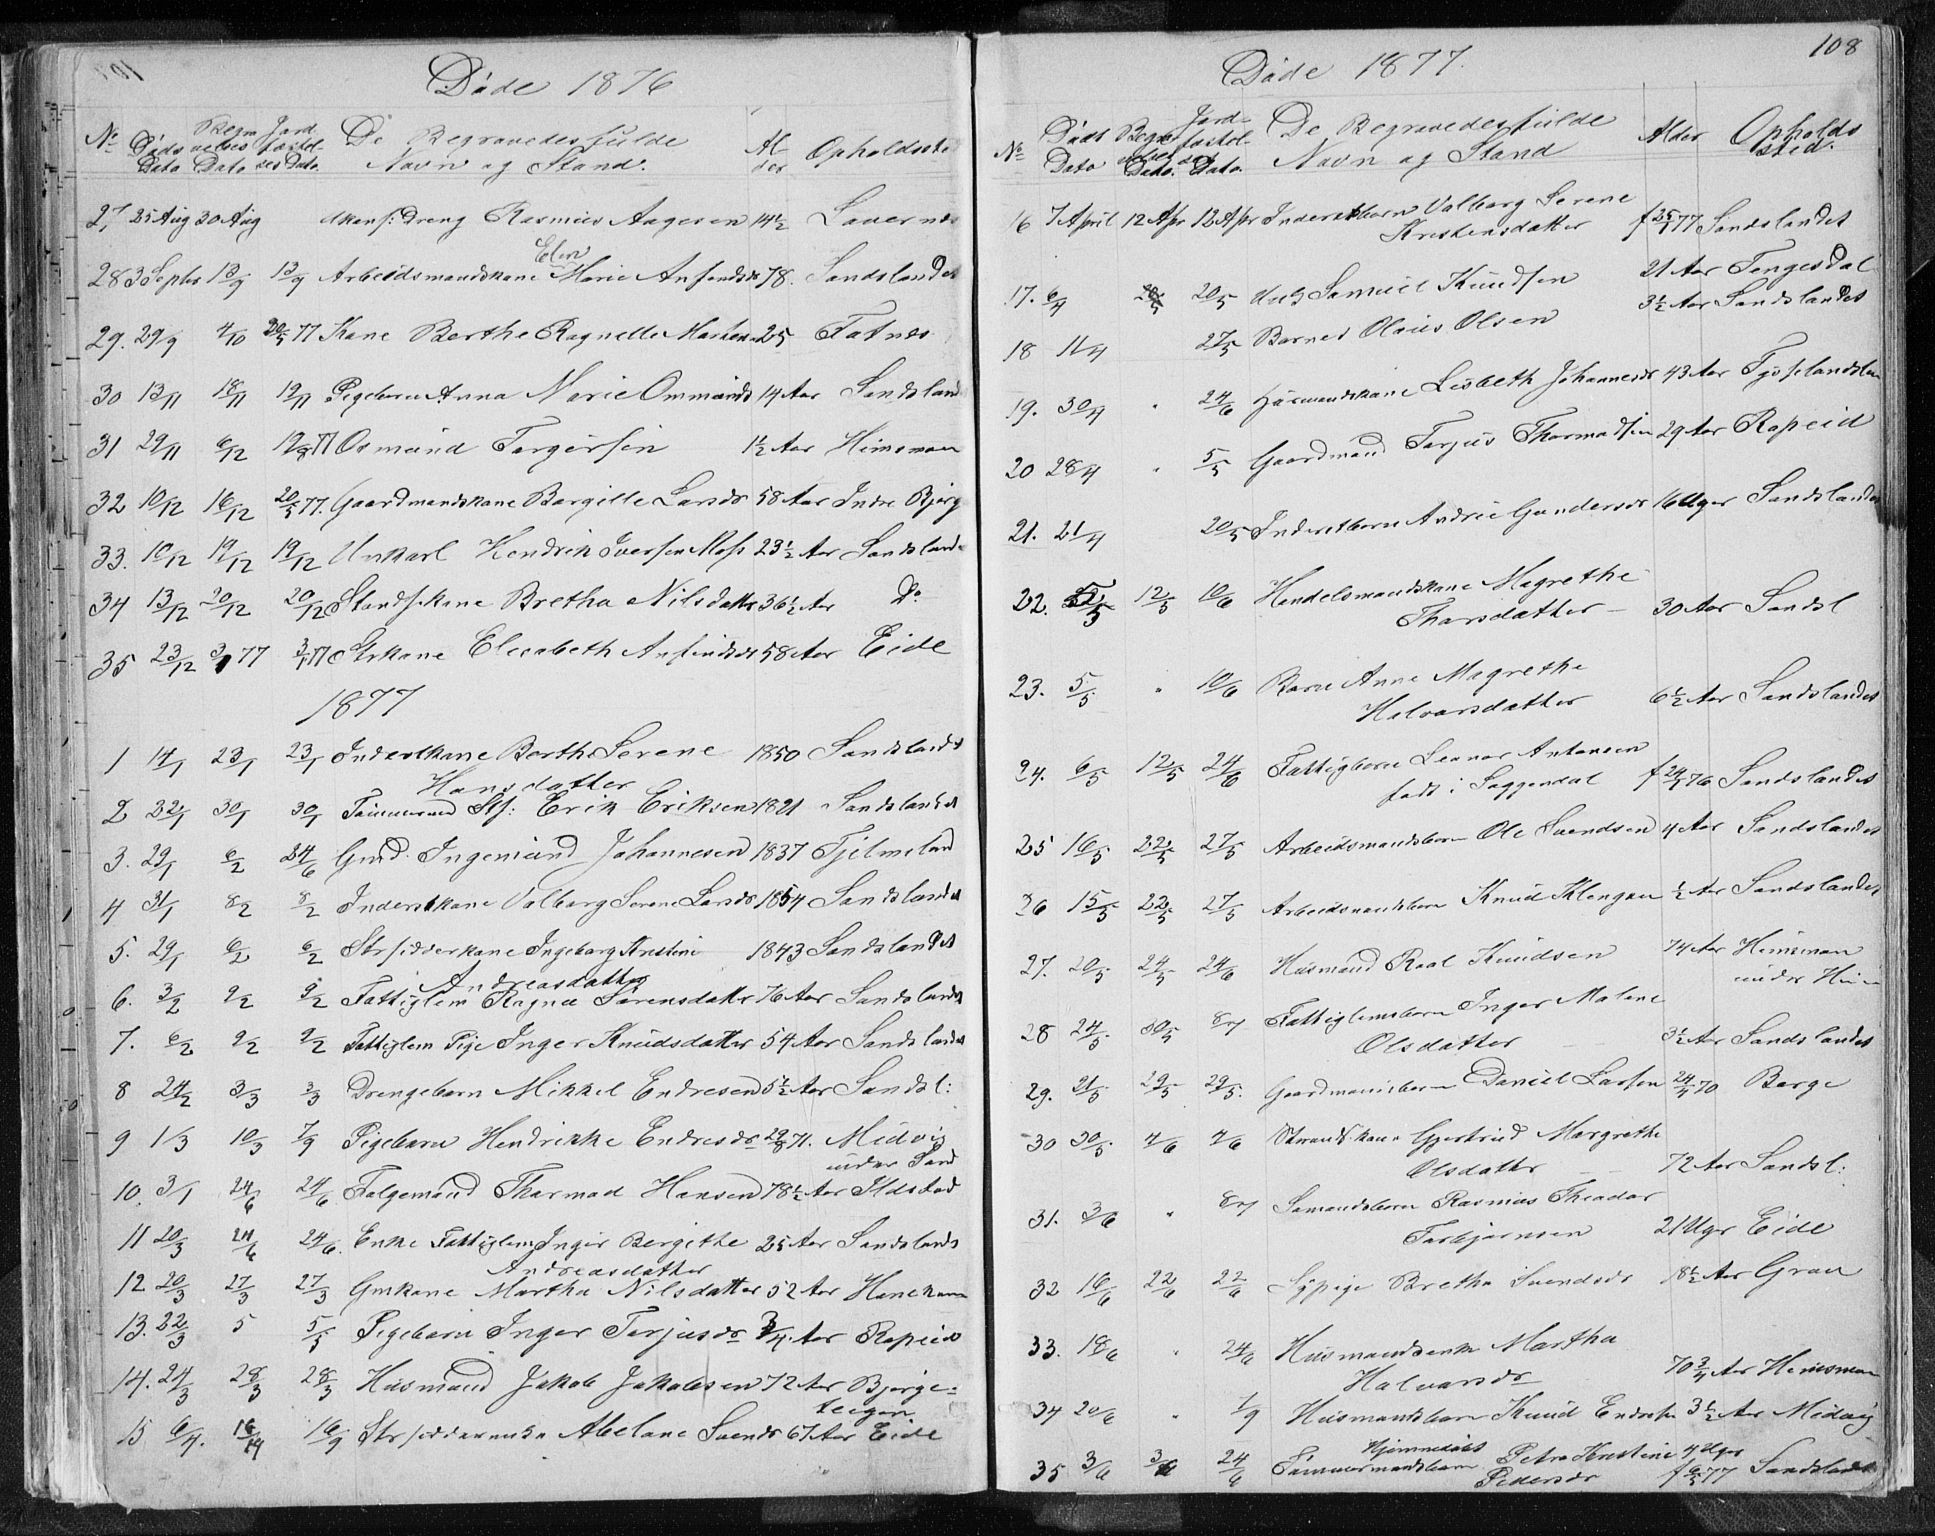 Døde 1876
No Døds Dato Begravelses Dato Jordfæstelses Dato De Begravedes fulde Navn og Stand. Alder Opholdsste
27, 25 Aug 30 Aug Dreng Rasmus Aagesen 14½
28 3 Septbr 13/9 13/9 Arbeidsmandskone Elen Marie Anfinds 78. Sandslandet
29. 29/9 4/10 20/5 77 Kone Berthe Ragnille 25
30 13/11 18/11 19/11 Pigebarn Anna Marie Ommunds 14 Aar Sandsland
31 29/11 6/12 Osmund Torgersen 1½ Aar Heimsmoen
32 10/12 16/12 20/5 77. Gaardmandskone Bergille Larsdr 58 Aar Indre Bjerg
33. 10/12 19/12 19/12 Unkarl Hendrik Iversen Moss 23½ Aar Sandsland
34 13/12 20/12 20/12 Bretha Nilsdatter 36½ Aar Do
35 23/12 3/1 77 3/1 77 Elisabeth Anfindsdr 58 Aar Eide
1877
1 14/1 23/1 23/1 Inderstkone Berthe Serene Hansdatter 1850 Sandslandet
2 22/1 30/1 30/1 Tømmermand Erik Eriksen 1821 Sandslandet
3. 29/1 6/2 24/6 Gmd. Ingemund Johannesen 1837 Fjelmeland
4 31/1 8/2 8/2 Inderstkone Valborg Serene Larsdr 1854 Sandslandet
5. 29/1 6/2 6/2 Strsidderkone Ingeborg Kristine Andreasdatter 1843 Sandslandet
6. 3/2 9/2 9/2 Fattiglem Ragna Sørensdatter 76 Aar Sandslandet
7. 6/2 9/2 9/2 Fattiglem Pige Inger Knudsdatter 54 Aar Sandslandet
8 24/2 3/3 3/3 Drengebarn Mikkel Endresen 5½ Aar Sandsl:
9 1/3 10/3 7/9 Pigebarn Hendrikke Endresdr 71. Midvig under Sand
10. 3/1 24/6 24/6 Folgemand Thormod Hansen 78½ Aar Ildstad
11 20/3 24/6 24/6. Enke Fattiglem Inger Bergithe Andreasdatter 25 Aar Sandslandet
12 20/3 27/3 27/3 Gmkone Martha Nilsdatter 52 Aar
13. 22/3 5 5/5 Pigebarn Inger Terjusdr 3/4 Aar Rapeid
14. 24/3 28/3 28/3 Husmand Jakob Jakobsen 72 Aar Bjerge=teigen
15 6/4. 16/4 16/9 Abelone Svendsdr 67 Aar Eide
108
Døde 1877.
No Døds Dato Begravelses Dato. Jordfæstelses Dato. De Begravedes fulde Navn og Stand Alder Opholdssted.
16 7 April 12 Apr 12 Apr Inderstbarn Valborg Serene Kristensdatter f 25/1 77 Sandslandet
17. 6/4 20/5 Samuel Knudsen 21 Aar Tengesdal
18 11/4 27/5 Barnet Olaus Olsen 3½ Aar Sandslandet
19. 30/4 " 24/6 Husmandskone Lisbeth Johannesdr 43 Aar
20 28/4 " 5/5 Gaardmand Terjus Thormodsen 29 Aar Rapeid
21. 21/4 20/5 Inderstbarn Andrie Gundersdr 16 Uger Sandslandet
22. 5/5 12/5 10/6 Handelsmandskone Magrethe Thorsdatter 30 Aar Sandsl
23. 5/5. " 10/6 Barn Anne Magrethe Halvorsdatter 6½ Aar Sandslandet
24. 6/5 12/5 24/6 Fattigbarn Leonar Antonsen født i Soggendal f 24/1 76 Sandslandet
25 16/5 22/5 27/5 Arbeidsmandsbarn Ole Svendsen 4 Aar Sandslandet
26 15/5 22/5 27/5 Arbeidsmandsbarn Knud ½ Aar Sandslandet
27. 20/5 24/5 24/6 Husmand Roal Knudsen 74 Aar Heimsmoen under
28 24/5. 30/5 8/7 Fattiglemsbarn Inger Malene Olsdatter 3½ Aar Sandslandet
29. 21/5 29/5 29/5. Gaardmandsbarn Daniel Larsen 24/4 70 Berge
30 30/5. 4/6 4/6 Gjertrud Margrethe Olsdatter 72 Aar Sandsl:
31. 3/6 " 8/7 Sømandsbarn Rasmus Theodor Torbjørnsen 21 Uger Eide
32 16/6 22/6 22/6 Sypige Bretha Svendsdr 18½ Aar
33. 18/6 " 24/6 Husmandsenke Martha Halvorsdr 70¾ Aar Heimsmoen
34 20/6 " 1/9 Husmandsbarn Knud Endresen 3½ Aar Midvig
35 3/6 3/6 24/6 Hjemmedøbt Tømmermandsbarn Petra Kristine Pedersdr 4 Uger f 6/5 77 Sandslandet